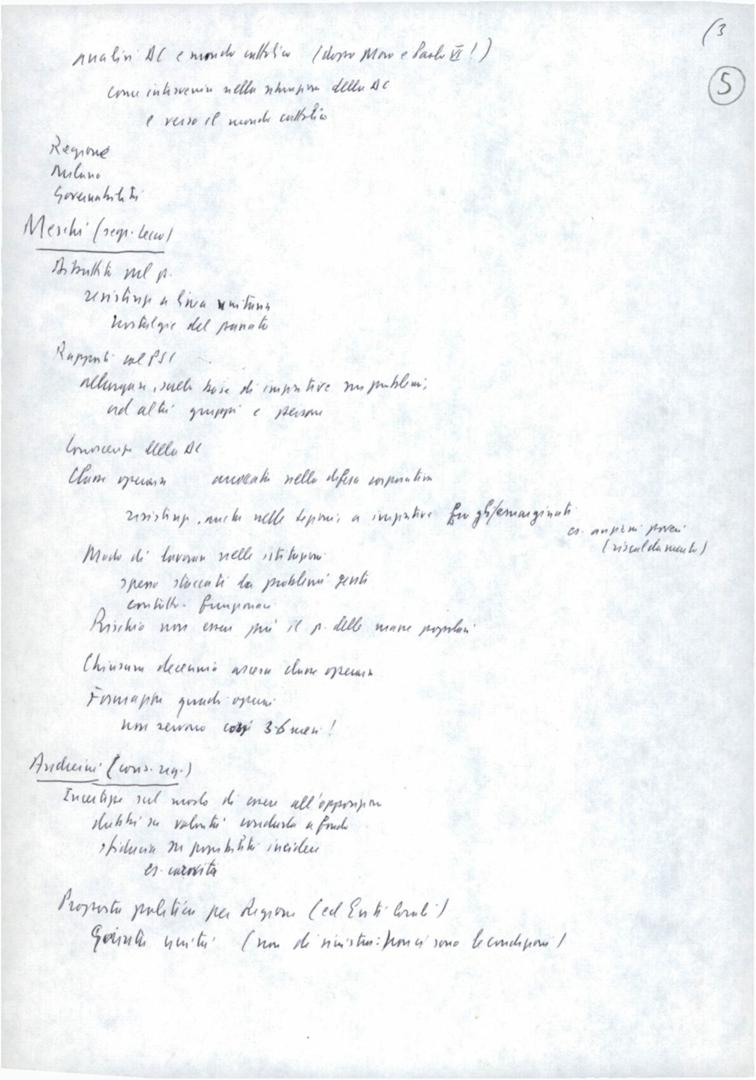 (3
5
analisi DC e mondo cattolico (dopo Moro e Paolo VI!)
come intervenire nella situazione della DC
e verso il mondo cattolico
Regione
Milano
Governabilità
Meschi (segr. Lecco)
Dibattito sul p.
resistenze a linea unitaria
nostalgie del passato
Rapporti col PSI
allargare, sulla base di iniziative su problemi,
ad altri gruppi e persone
Conoscenza della DC
Classe operaia arroccata nella difesa corporativa
resistenze, anche nelle regioni, a iniziative gli emarginati
es. anziani poveri
(riscaldamento)
Modo di lavorare nelle istituzioni
spesso staccati da problemi gente
contatto funzionari
Rischio non essere più il p. delle masse popolari
Chiusura decennio ascesa classe operaia
Formazione quadri operai
non servono corsi 3-6 mesi!
Andreini (cons. reg.)
Incertezze sul modo di essere all'opposizione
dubbi su volontà condurla a fondo
sfiducia su possibilità incidere
es. carovita
Proposta politica per Regione (ed Enti locali)
Giunta unità (non di sinistra: non ci sono le condizioni)